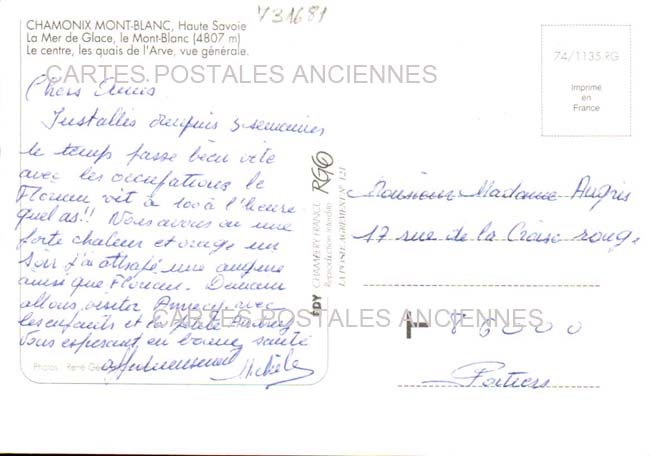 CHAMONIX MONT-BLANC, Haute Savoie
La Mer de Glace, le Mont-Blanc (4807 m)
Le centre, les quais de l'Arve, vue générale.
731681
74/1135 RG
Imprimé
en
France
CARTES POSTALES ANCIENNES
Chers Amis
Installés depuis 3 semaines
le temps passe bien vite
avec les occupations le
Florian vit à 100 à l'heure
quel as!! Nous avons eu une
forte chaleur et orage un
soir j'ai attrapé une angine
ainsi que Florian. Demain
allons visiter Annecy avec
les enfants et la petite
Vous espérant en bonne santé
affectueusement
Michèle
Photos : René
EDY
CHAMBÉRY FRANCE
Reproduction interdite
LA POSTE AGREMENT N° 121
RGO
Monsieur Madame Augris
17 rue de la Croix rouge
CARTES POSTALES ANCIENNES
86000
Poitiers